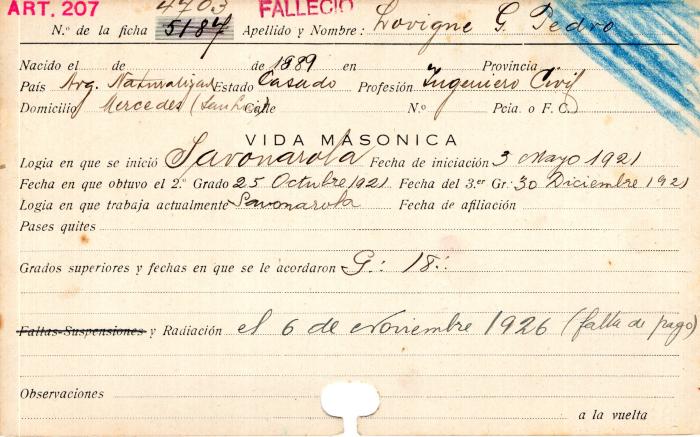 ART. 207 4703 FALLECIO
N.º de la ficha 5187 Apellido y Nombre: Lovigne G. Pedro
Nacido el de de 1889 en Provincia
País Arg. Naturalizado Estado Casado Profesión Ingeniero Civil
Domicilio Mercedes (San Luis) Calle N.º Pcia. o F. C.
VIDA MASONICA
Logia en que se inició Savonarola Fecha de iniciación 3 Mayo 1921
Fecha en que obtuvo el 2.º Grado 25 Octubre 1921 Fecha del 3.er Gr. 30 Diciembre 1921
Logia en que trabaja actualmente Savonarola Fecha de afiliación
Pases quites
Grados superiores y fechas en que se le acordaron G.: 18.:
Faltas-Suspensiones y Radiación el 6 de Noviembre 1926 (falta de pago)
Observaciones
a la vuelta